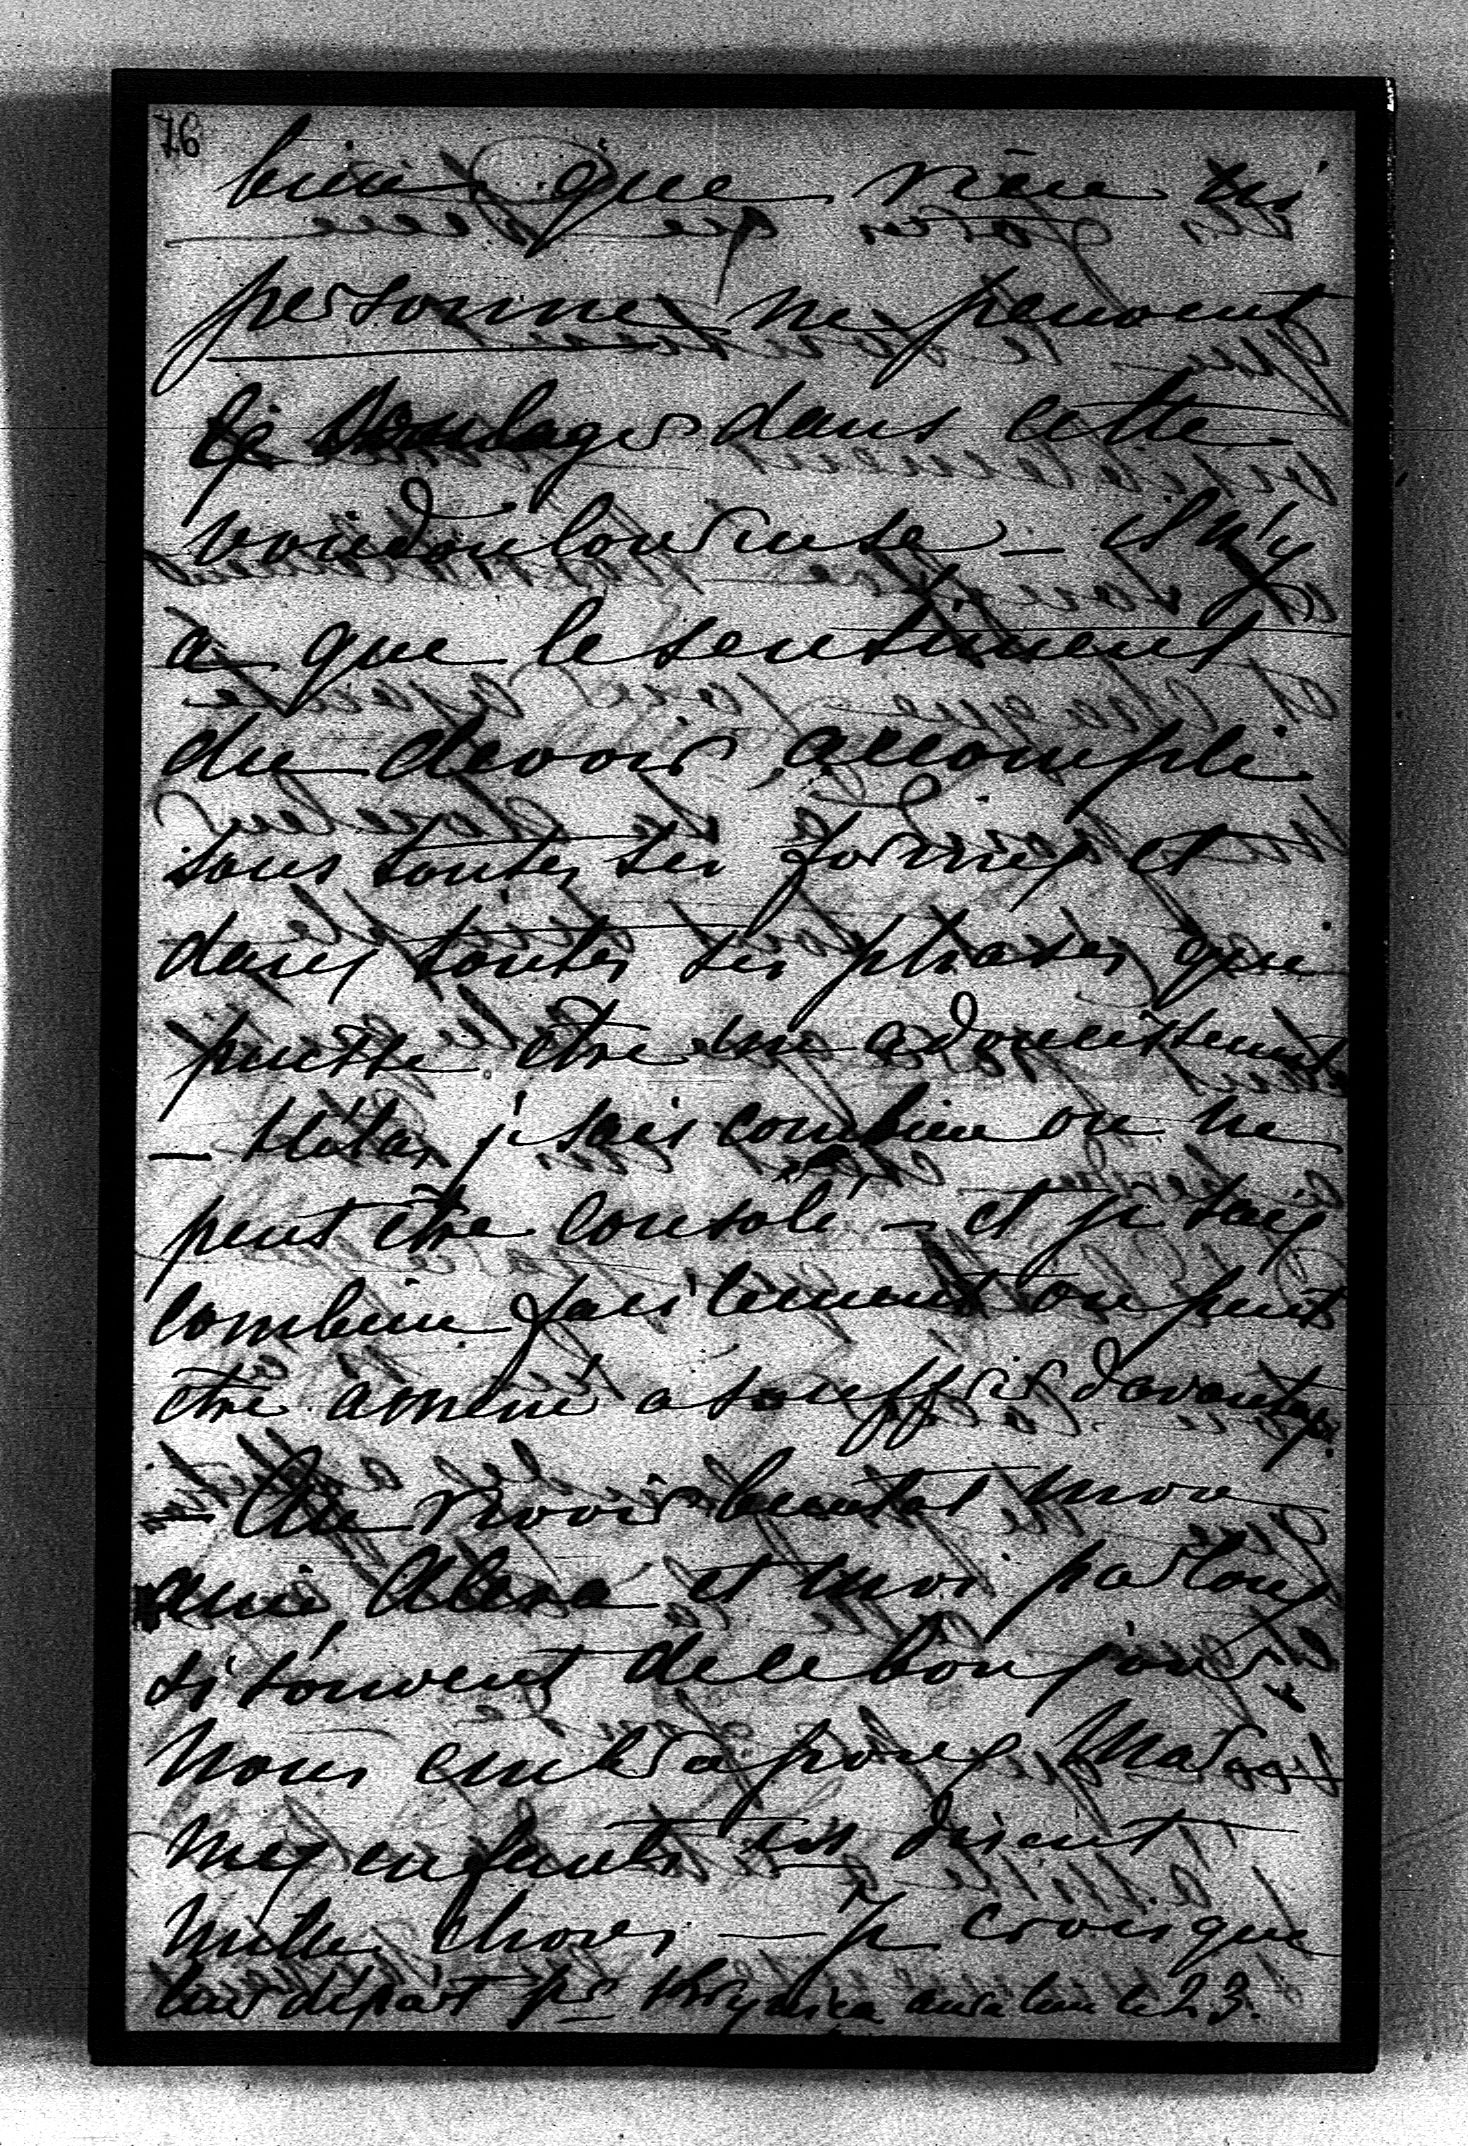 76
bien que rien ni
personne ne peuvent
te soulager dans cette
voie douloureuse – il n'y
a que le sentiment
du devoir accompli
sous toutes ses formes et
dans toutes ses phases que
puisse être un adoucissement
– Hélas, je sais combien on ne
peut être consolé – et je sais
combien facilement on peut
être amené a souffrir davantage.
– Au revoir bientot mon
ami, et moi parlons
si souvent de ce bon jour.
Nous embrassons
mes enfants t'en disent
mille choses – Je crois que
leur départ pr Krynica aura lieu le 23.